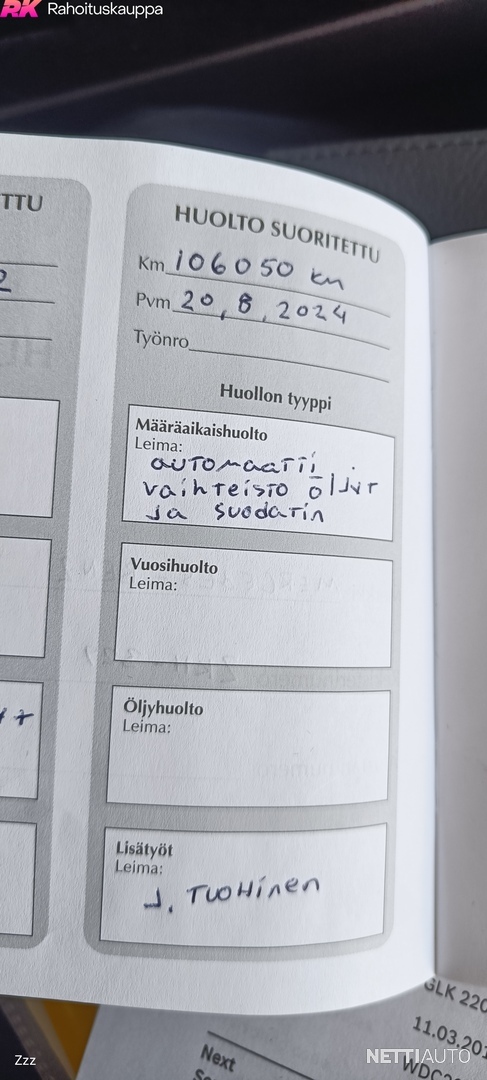 RK Rahoituskauppa
TTU
2
HUOLTO SUORITETTU
Km 106050 km
Pvm 20,8,2024
Työnro
Huollon tyyppi
Määräaikaishuolto
Leima:
automaatti
vaihteisto öljyt
ja suodatin
Vuosihuolto
Leima:
Öljyhuolto
Leima:
Lisätyöt
Leima:
J. Tuohinen
GLK 220
11.03.201
Next
WDC
NETTIAUTO
Zzz